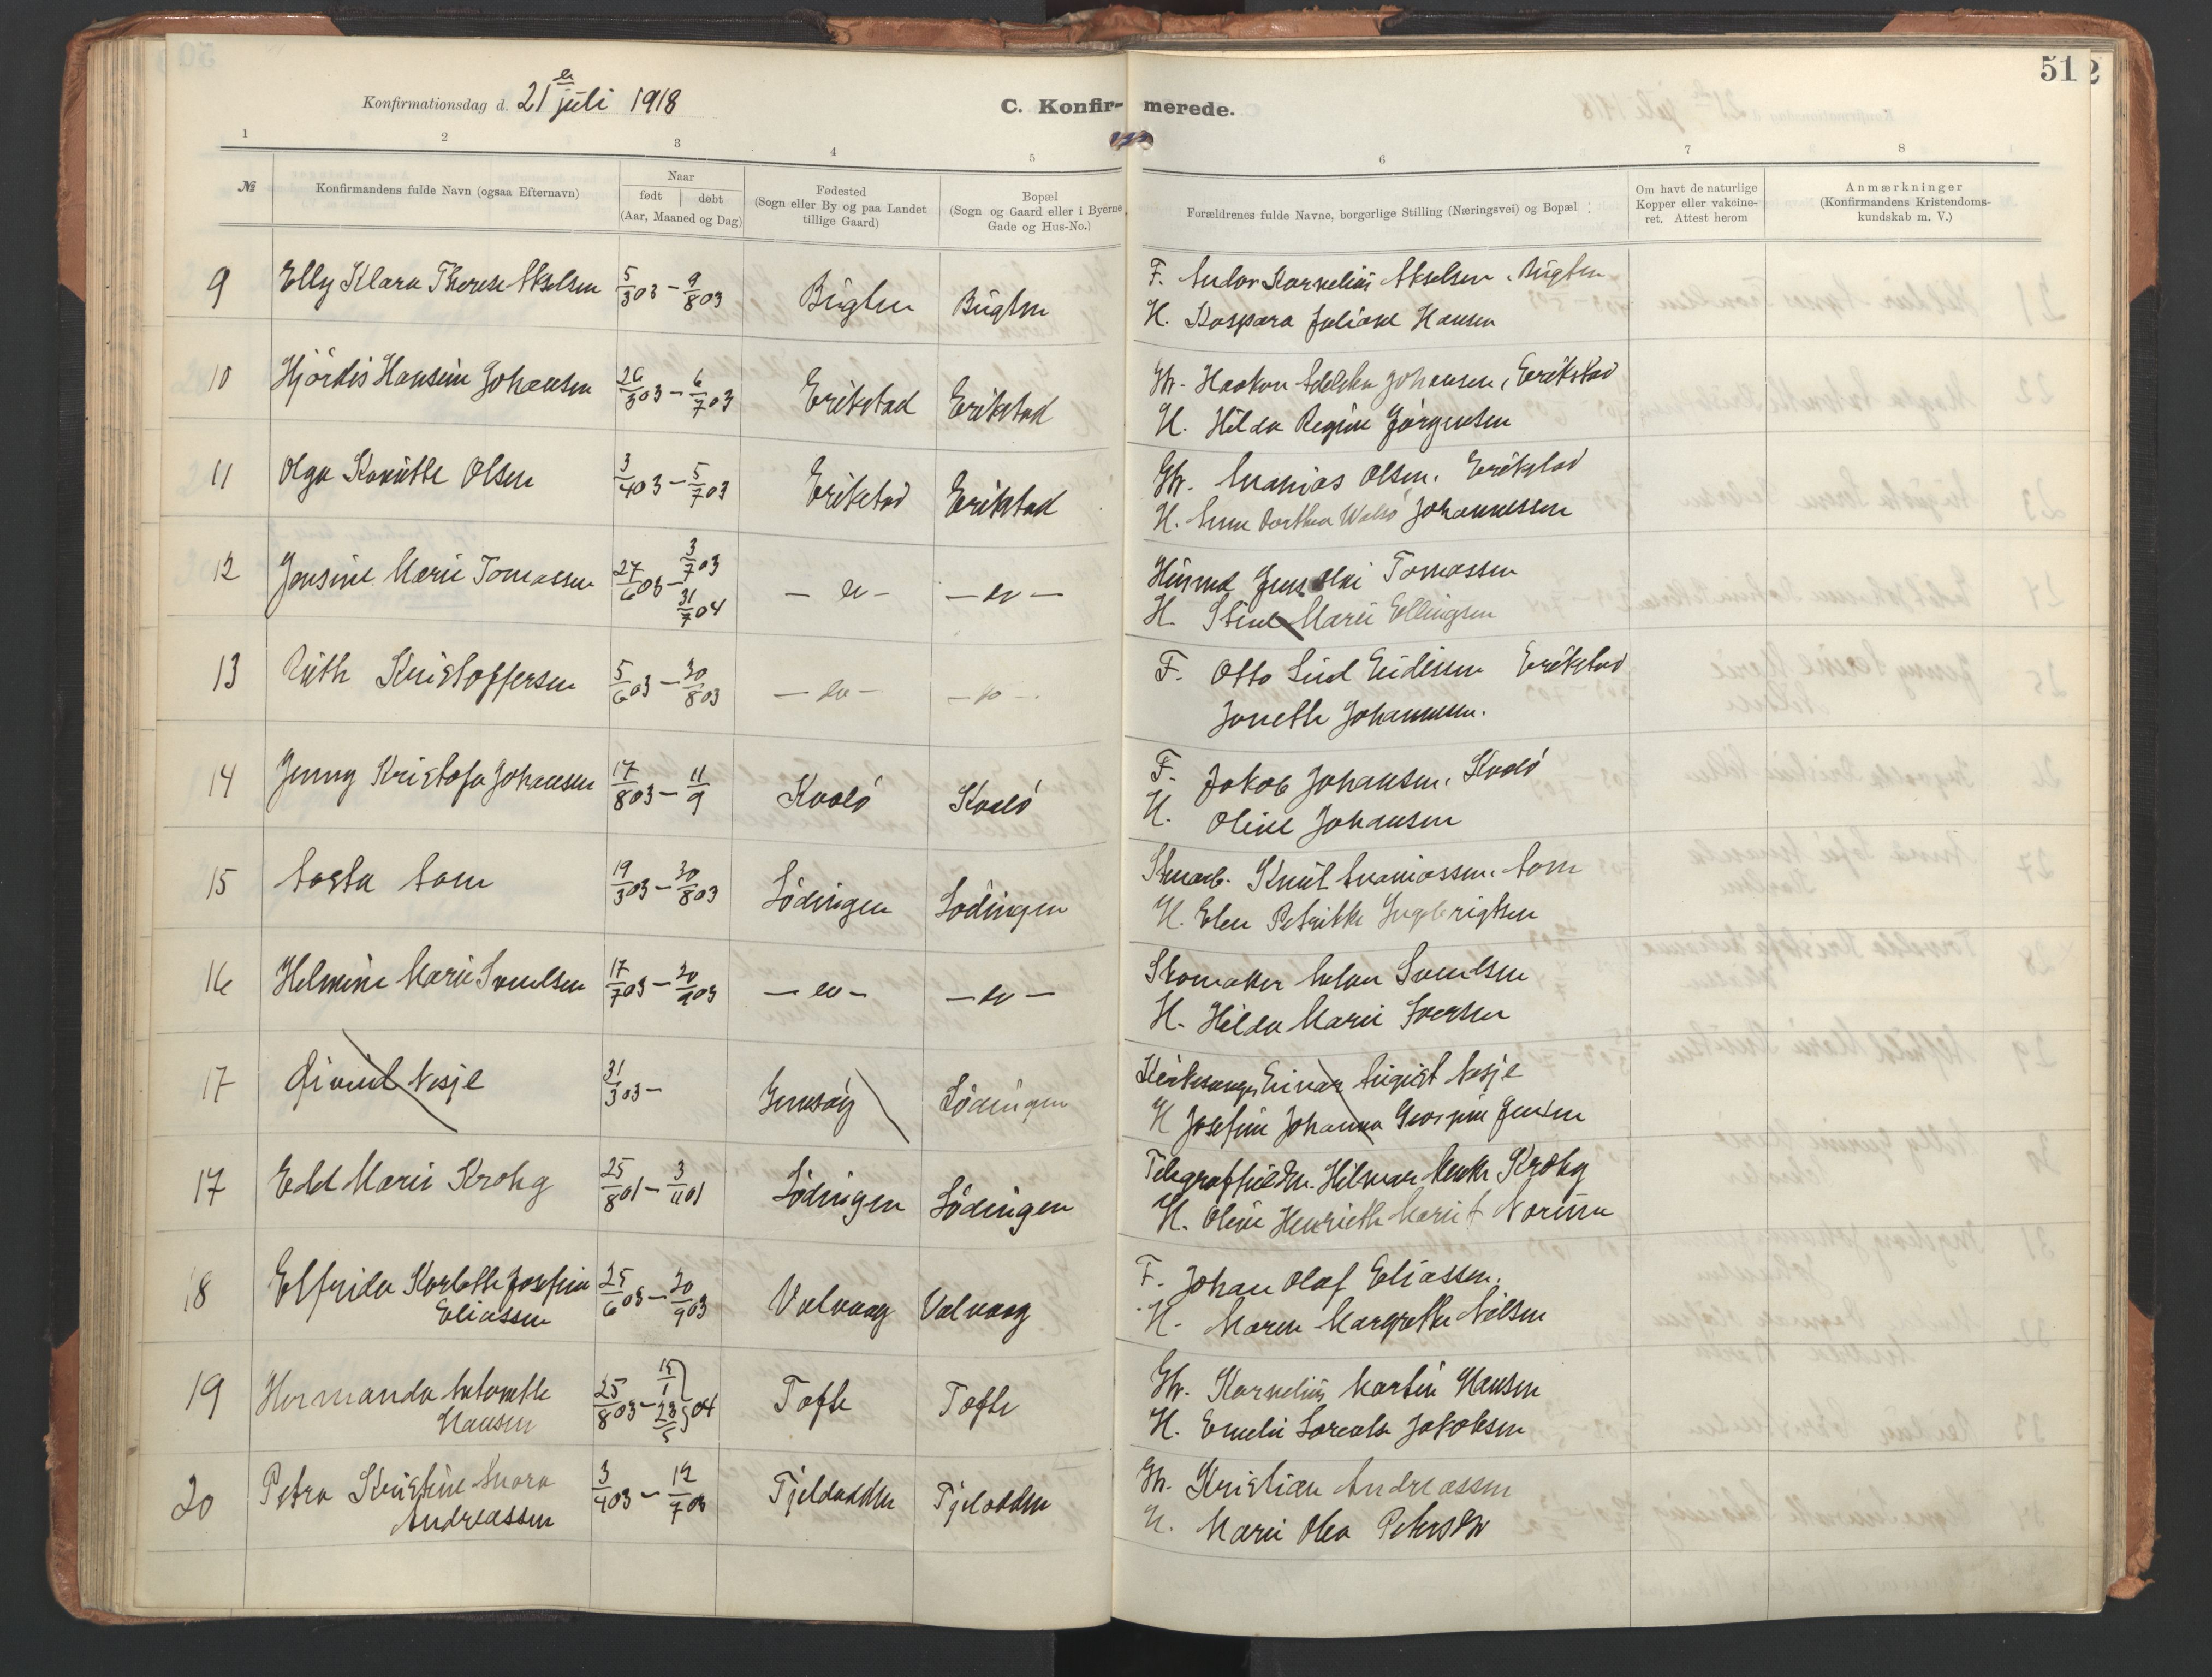 Konfirmationsdag d. 21de juli 1918
C. Konfirmerede.
51
1 2 3 4 5 6 7 8
№
Konfirmandens fulde Navn (ogsaa Efternavn)
Naar
født | døbt
(Aar, Maaned og Dag)
Fødested
(Sogn eller By og paa Landet
tillige Gaard)
Bopæl
(Sogn og Gaard eller i Byerne
Gade og Hus-No.)
Forældrenes fulde Navne, borgerlige Stilling (Næringsvei) og Bopæl
Om havt de naturlige
Kopper eller vakcine-
ret. Attest herom
Anmærkninger
(Konfirmandens Kristendoms-
kundskab m. V.)
9 Elly Klara Therese Akselsen 5/3 03 - 9/8 03 Bugten Bugten F. Andor Kornelius Akselsen, Bugten
H. Kaspara Juliane Hansen
10 Hjördis Hansine Johansen 26/3 03 - 6/7 03 Erikstad Erikstad Gbr. Haakon Johansen, Erikstad
H. Hilda Regine Jörgensen
11 Olga Olsen 3/4 03 - 5/7 03 Erikstad Erikstad Gbr. Ananias Olsen. Erikstad
H. Anna Dorthea Johannessen
12 Jensine Marie Tomassen 27/6 03 - 3/7 03 31/7 04 — do — — do — Husmd Jens Tomassen
H. Stine Marie Ellingsen
13 Ruth Kristoffersen 5/6 03 - 30/8 03 — do — — do — F. Otto Erikstad
Jonette Johannesen.
14 Jenny Kristofa Johansen 17/8 03 - 11/9 Kvalö Kvalö F. Jakob Johansen, Kvalö
H. Oline Johansen
15 Aasta Aam 19/3 03 - 30/8 03 Lödingen Lödingen Knut Ananiassen Aam
H. Elen Petrikke Ingebrigtsen
16 Helmine Marie Svendsen 17/7 03 - 20/9 03 — do — — do — Skomaker Anton Svendsen
H. Hilda Marie Iversen
17 Øivind Nesje 31/3 03 - Lödingen Kirkesanger Einar August Nesje
H Josefine Johanna Georgine Jensen
17 Edel Marie Krohg 25/8 01 - 3/11 01 Lödingen Lödingen Hilmar Krohg
H. Oline Henriette Marie
18 Elfrida Karlotte Josefine
Eliassen 25/6 03 - 20/9 03 Valvaag Valvaag F. Johan Olaf Eliassen.
H. Maren Margrethe Nilsen
19 Hermanda Antonette
Hansen 25/8 03 - 15/1 23/5 04 Tofte Tofte Gbr. Kornelius Martin Hansen
H. Emelie Jakobsen
20 Petra Kristine Anora
Andreassen 3/4 03 - 12/7 03 Tjeldodden Tjelodden Gbr. Kristian Andreassen
H. Marie Olea Petersen